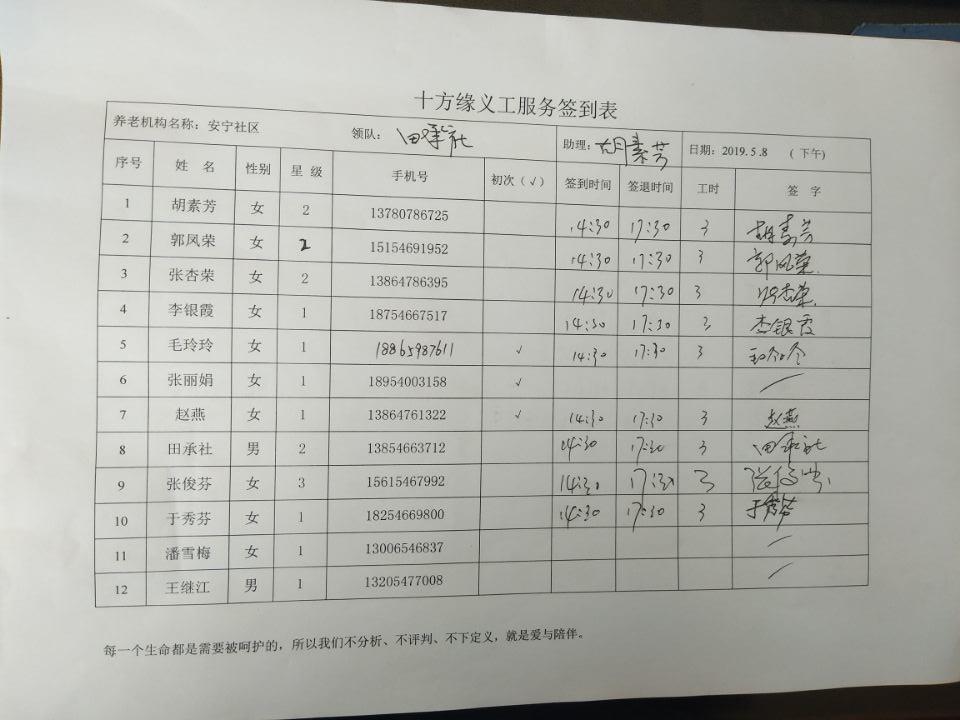 十方缘义工服务签到表
养老机构名称：安宁社区 领队： 田承社 助理：胡素芳 日期：2019.5.8 （下午）
序号 姓 名 性别 星 级 手机号 初次（√） 签到时间 签退时间 工时 签 字
1 胡素芳 女 2 13780786725 14:30 17:30 3 胡素芳
2 郭凤荣 女 2 15154691952 14:30 17:30 3 郭凤荣
3 张杏荣 女 2 13864786395 14:30 17:30 3 张杏荣
4 李银霞 女 1 18754667517 14:30 17:30 3 李银霞
5 毛玲玲 女 1 18865987611 √ 14:30 17:30 3
6 张丽娟 女 1 18954003158 √ /
7 赵燕 女 1 13864761322 √ 14:30 17:30 3 赵燕
8 田承社 男 2 13854663712 14:30 17:30 3 田承社
9 张俊芬 女 3 15615467992 14:30 17:30 3
10 于秀芬 女 1 18254669800 14:30 17:30 3 于秀芬
11 潘雪梅 女 1 13006546837 /
12 王继江 男 1 13205477008 /
每一个生命都是需要被呵护的，所以我们不分析、不评判、不下定义，就是爱与陪伴。